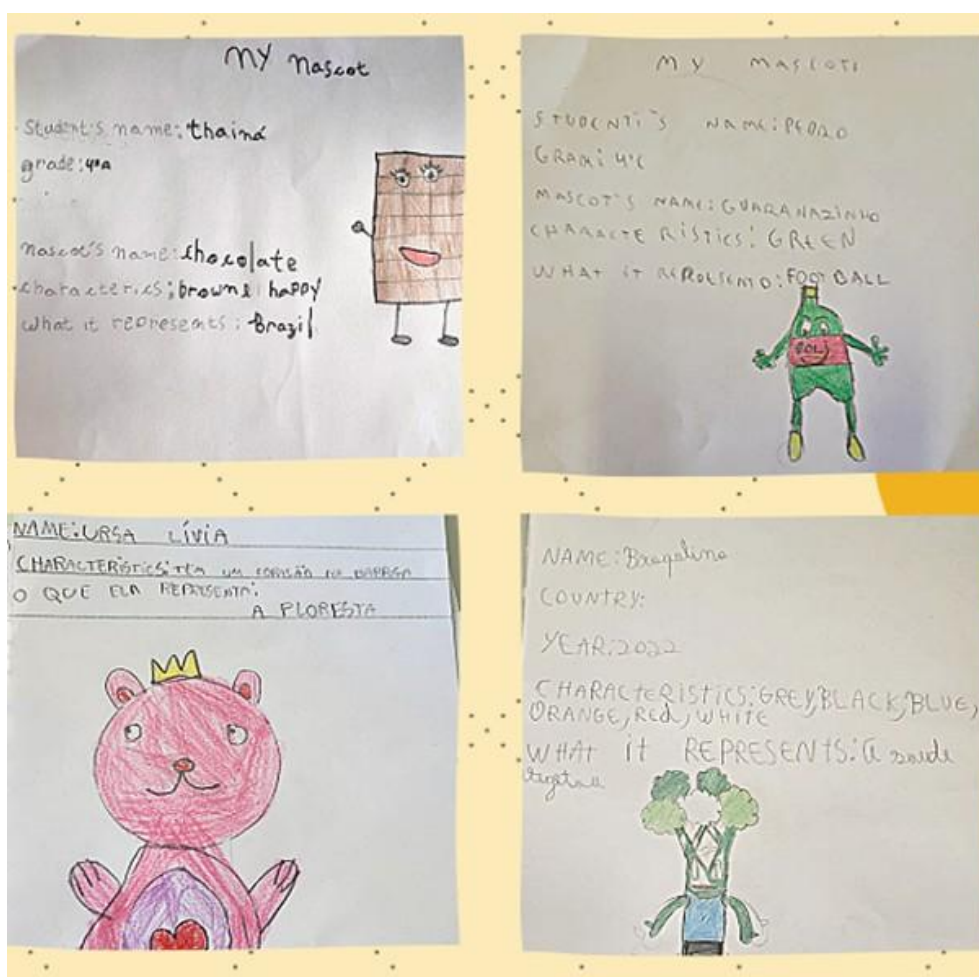 MY nascot
Student's name: thainá
grade: 4ºA
nascot's name: chocolate
characterics; brown e happy
what it represents: Brazil
MY MASCOTE
STUDENTI'S NAME: PEDRO
4ºC
MASCOT'S NAME: GUARANAZINHO
CHARACTE RISTICS: GREEN
WHAT it FOOTBALL
NAME: URSA LÍVIA
CHARACTERÍSTICS: TEM UM CORASÃO NA BARRIGA
O QUE ELA REPRESENTA:
A FLORESTA
NAME:
COUNTRY:
YEAR: 2022
CHARACteRiSTiCS: GREY, BLACK, BLUE,
ORANGE, Red, WHITE
WHAt it REPRESENtS: a saude